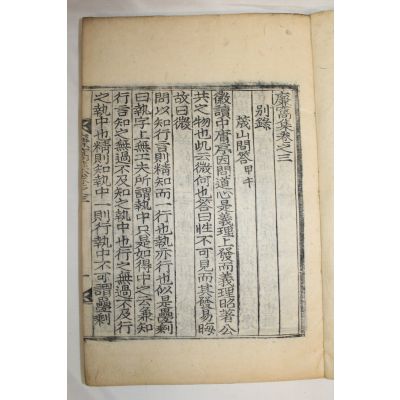 廉高集卷之三
別錄
箴山問答 甲午
徽讀中庸序因問道心是義理上發而義理昭著公
共之物也旣云微何也答曰性不可見而其發易晦
故曰微
問以知行言則精知而一行也執亦行也似是疊剩
曰執字上無工夫所謂執中只是如得中之云兼知
行言知之無過不及知之執中也行之無過不及行
之執中也精則知執中一則行執中不可謂疊剩
集卷之三
一